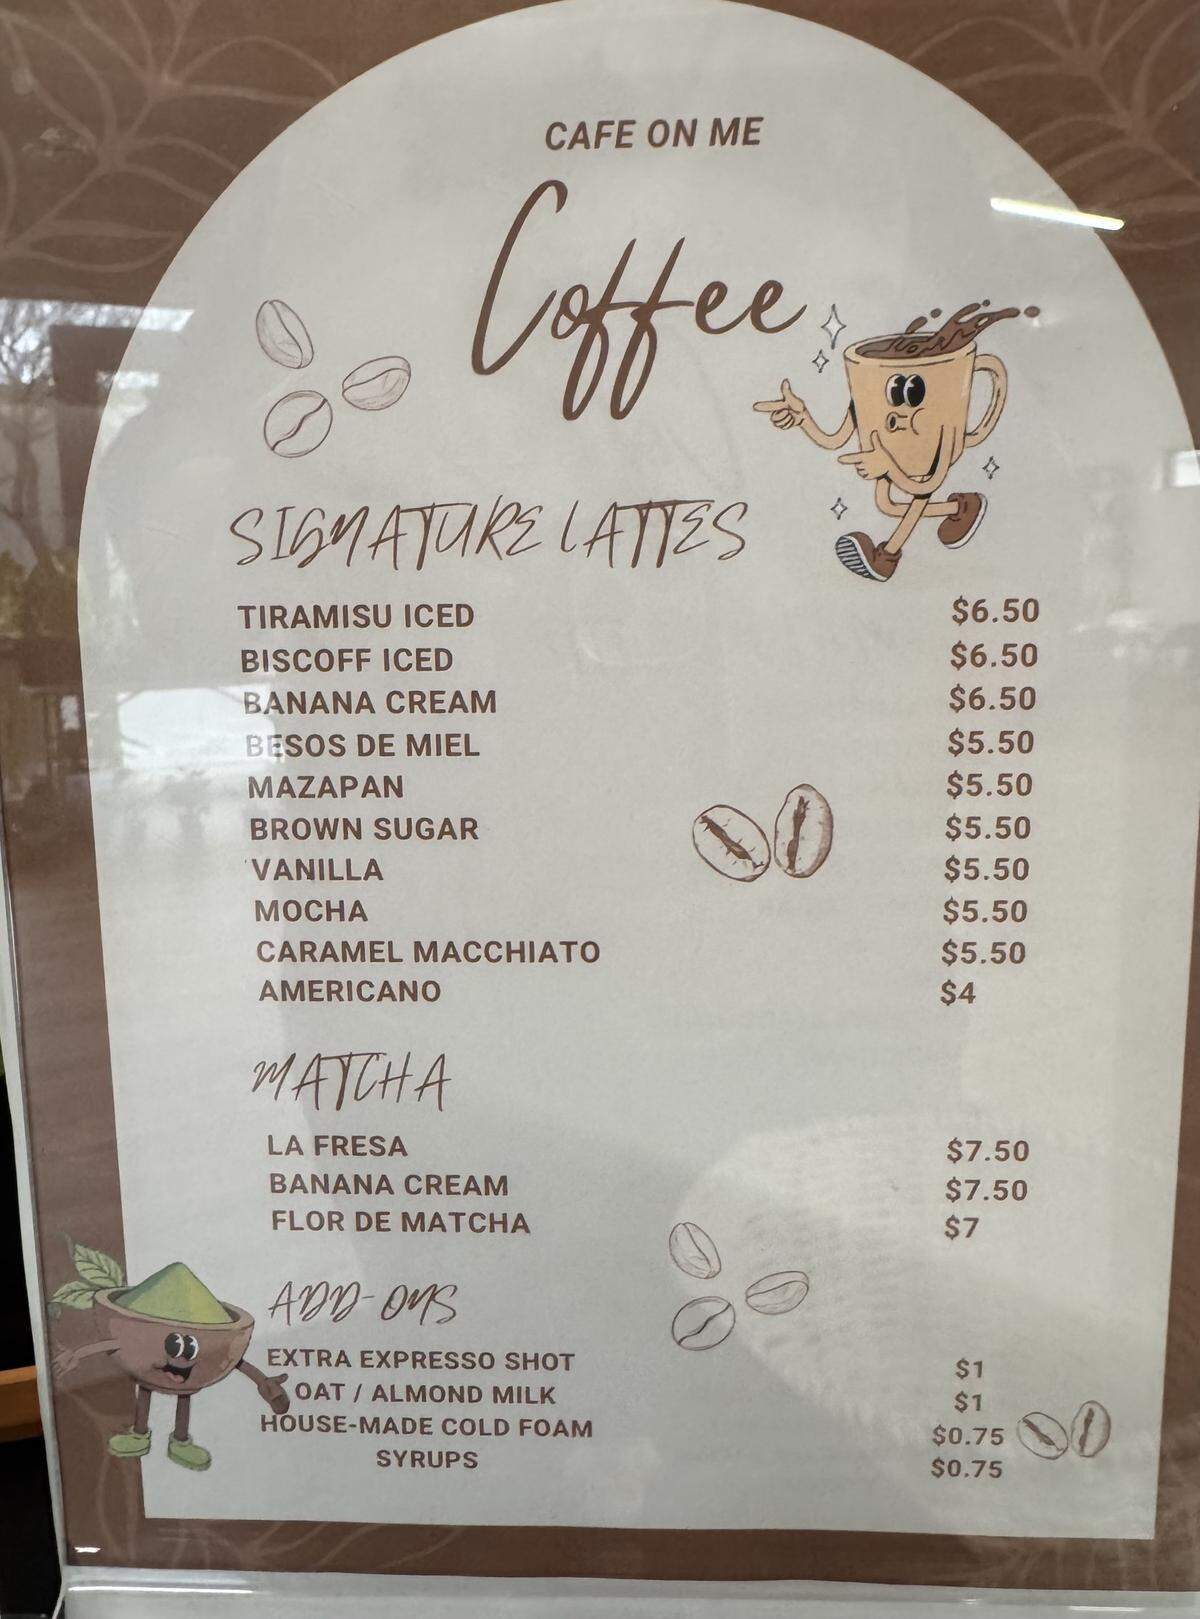 CAFE ON ME
Coffee
SIGNATURE LATTES
TIRAMISU ICED $6.50
BISCOFF ICED $6.50
BANANA CREAM $6.50
BESOS DE MIEL $5.50
MAZAPAN $5.50
BROWN SUGAR $5.50
VANILLA $5.50
MOCHA $5.50
CARAMEL MACCHIATO $5.50
AMERICANO $4
MATCHA
LA FRESA $7.50
BANANA CREAM $7.50
FLOR DE MATCHA $7
ADD-ONS
EXTRA EXPRESSO SHOT $1
OAT / ALMOND MILK $1
HOUSE-MADE COLD FOAM $0.75
SYRUPS $0.75